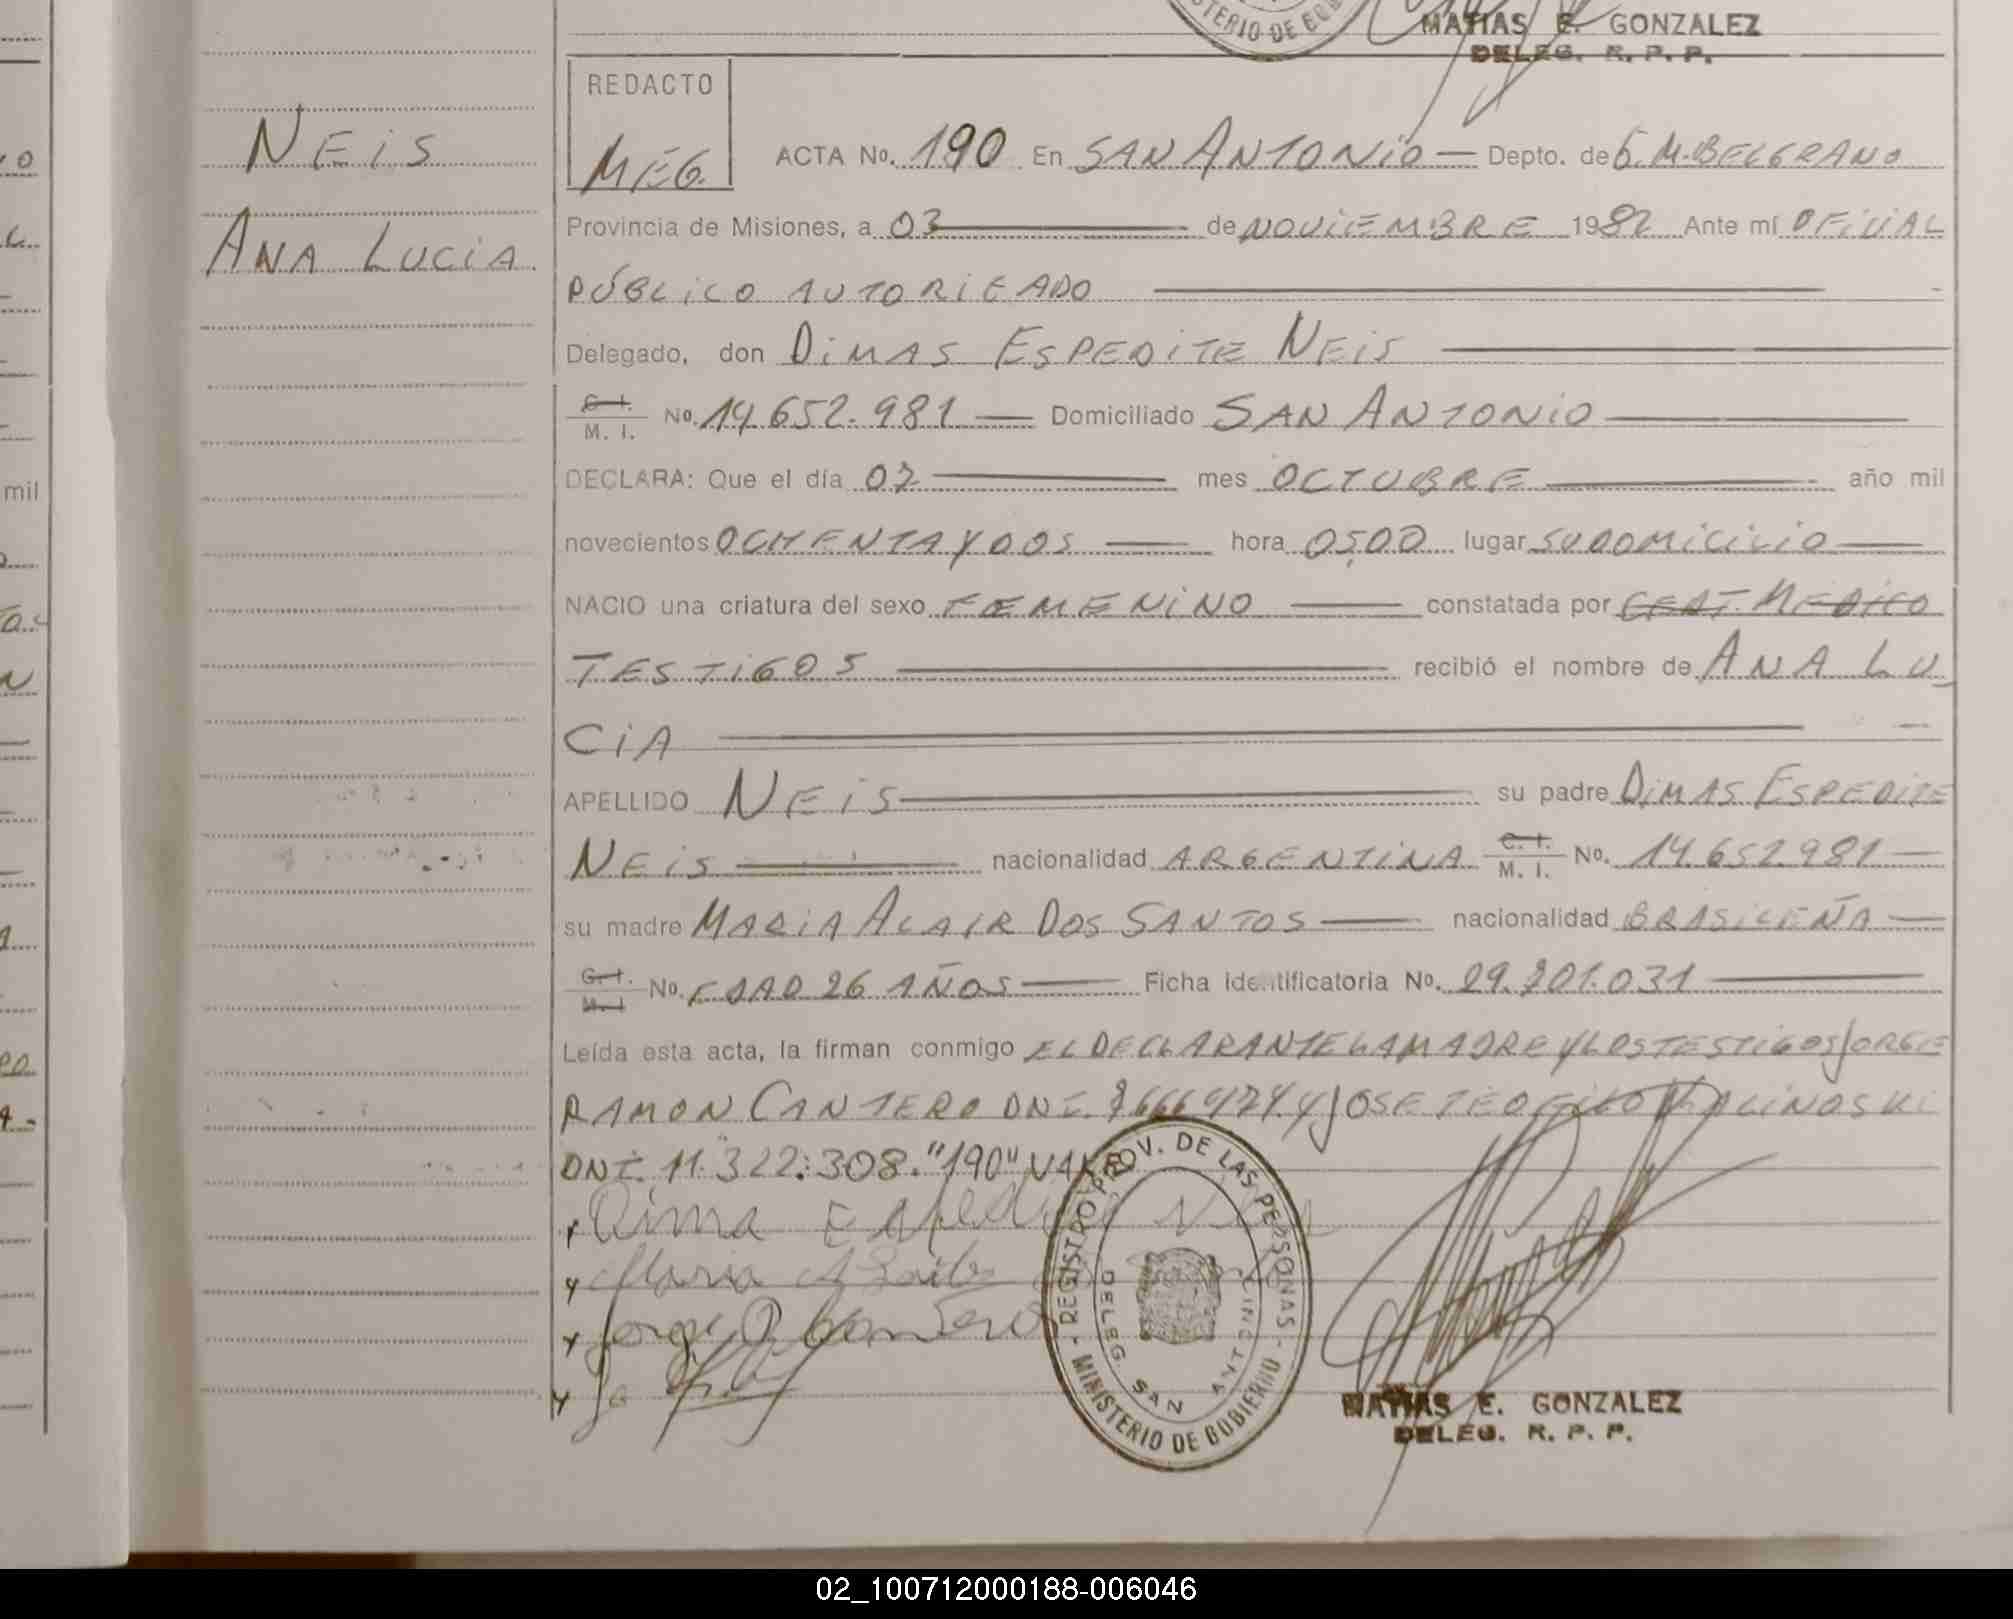 MINISTERIO DE GOB
MATIAS E. GONZALEZ
DELEG. R. P. P.
NEIS
ANA LUCIA.
REDACTO
MEG.
ACTA No. 190 En SAN ANTONIO — Depto. de G. M. BELGRANO
Provincia de Misiones, a 03 — de NOVIEMBRE 1982 Ante mí OFICIAL
PÚBLICO AUTORIZADO —
Delegado, don DIMAS ESPEDITE NEIS —
C. I. / M. I. No. 14.652.981 — Domiciliado SAN ANTONIO —
DECLARA: Que el día 07 — mes OCTUBRE — año mil
novecientos OCHENTA Y DOS — hora 05,00 lugar SU DOMICILIO —
NACIO una criatura del sexo FEMENINO — constatada por CERT. MEDICO
TESTIGOS — recibió el nombre de ANA LU_
CIA —
APELLIDO NEIS — su padre DIMAS ESPEDITE
NEIS — nacionalidad ARGENTINA C. I. / M. I. No. 14.652.981 —
su madre MARIA ALAIR DOS SANTOS — nacionalidad BRASILEÑA —
C. I. / M. I No. EDAD 26 AÑOS — Ficha identificatoria No. 29.201.031 —
Leída esta acta, la firman conmigo EL DECLARANTE LA MADRE Y LOS TESTIGOS JORGE
RAMON CANTERO DNI. Y JOSE TEOFILO
DNI. 11.322.308. "190" VALE
Dima Espedite Neis
Maria Alaib
Jorge R Cantero
REGISTRO PROV. DE LAS PERSONAS
MINISTERIO DE GOBIERNO
DELEG. SAN ANTONIO
MATIAS E. GONZALEZ
DELEG. R. P. P.
mil
02_100712000188-006046